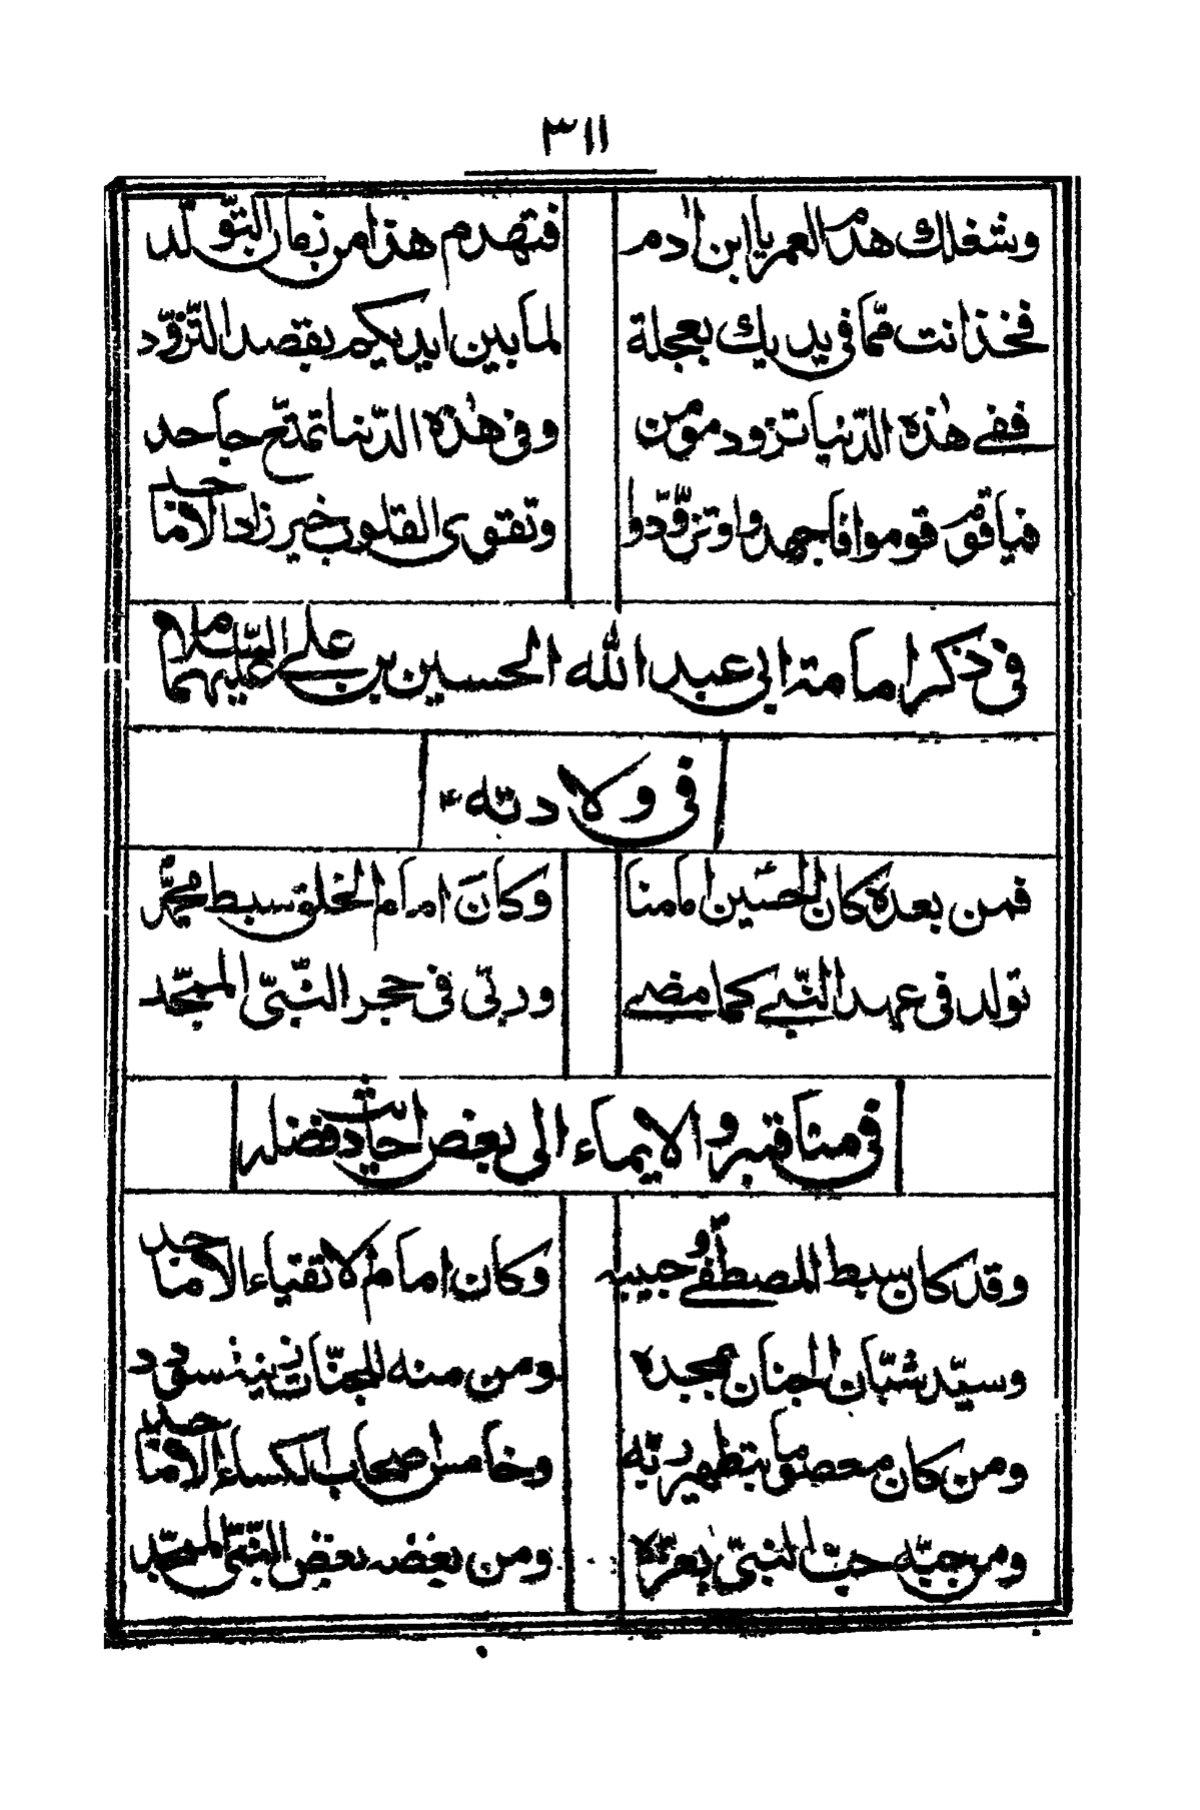 ٣١١
وشغلك هدم العمر يا ابن ادم فتهدم هذا من زمان التّولّد
فخذ انت ممّا في يديك بعجلة لما بين ايديكم بقصد التّزوّد
ففي هذه الدّنيا تزود مومن وفي هذه الدّنيا تمتّع جاحد
فيا قوم قوموا فاجهدوا وتزوّدوا وتقوى القلوب خير زاد الاماجد
في ذكر امامة ابي عبد الله الحسين بن علي عليهما السّلام
في ولادته ع
فمن بعده كان الحسين امامنا وكان امام الخلق سبط محمّد
تولد في عهد النّبي كما مضى وربّي في حجر النّبيّ الممجّد
في مناقبه والايماء الى بعض احاديث فضله
وقد كان سبط المصطفى وحبيبه وكان امام الاتقياء الاماجد
وسيّد شبّان الجنان بمجده ومن منه للجنّات
ومن كان معصوما بتطهير ربّه وخامس اصحاب الكساء الاماجد
ومن حبّه حبّ النبيّ بعزّة ومن بغضه بغض النّبيّ الممجّد